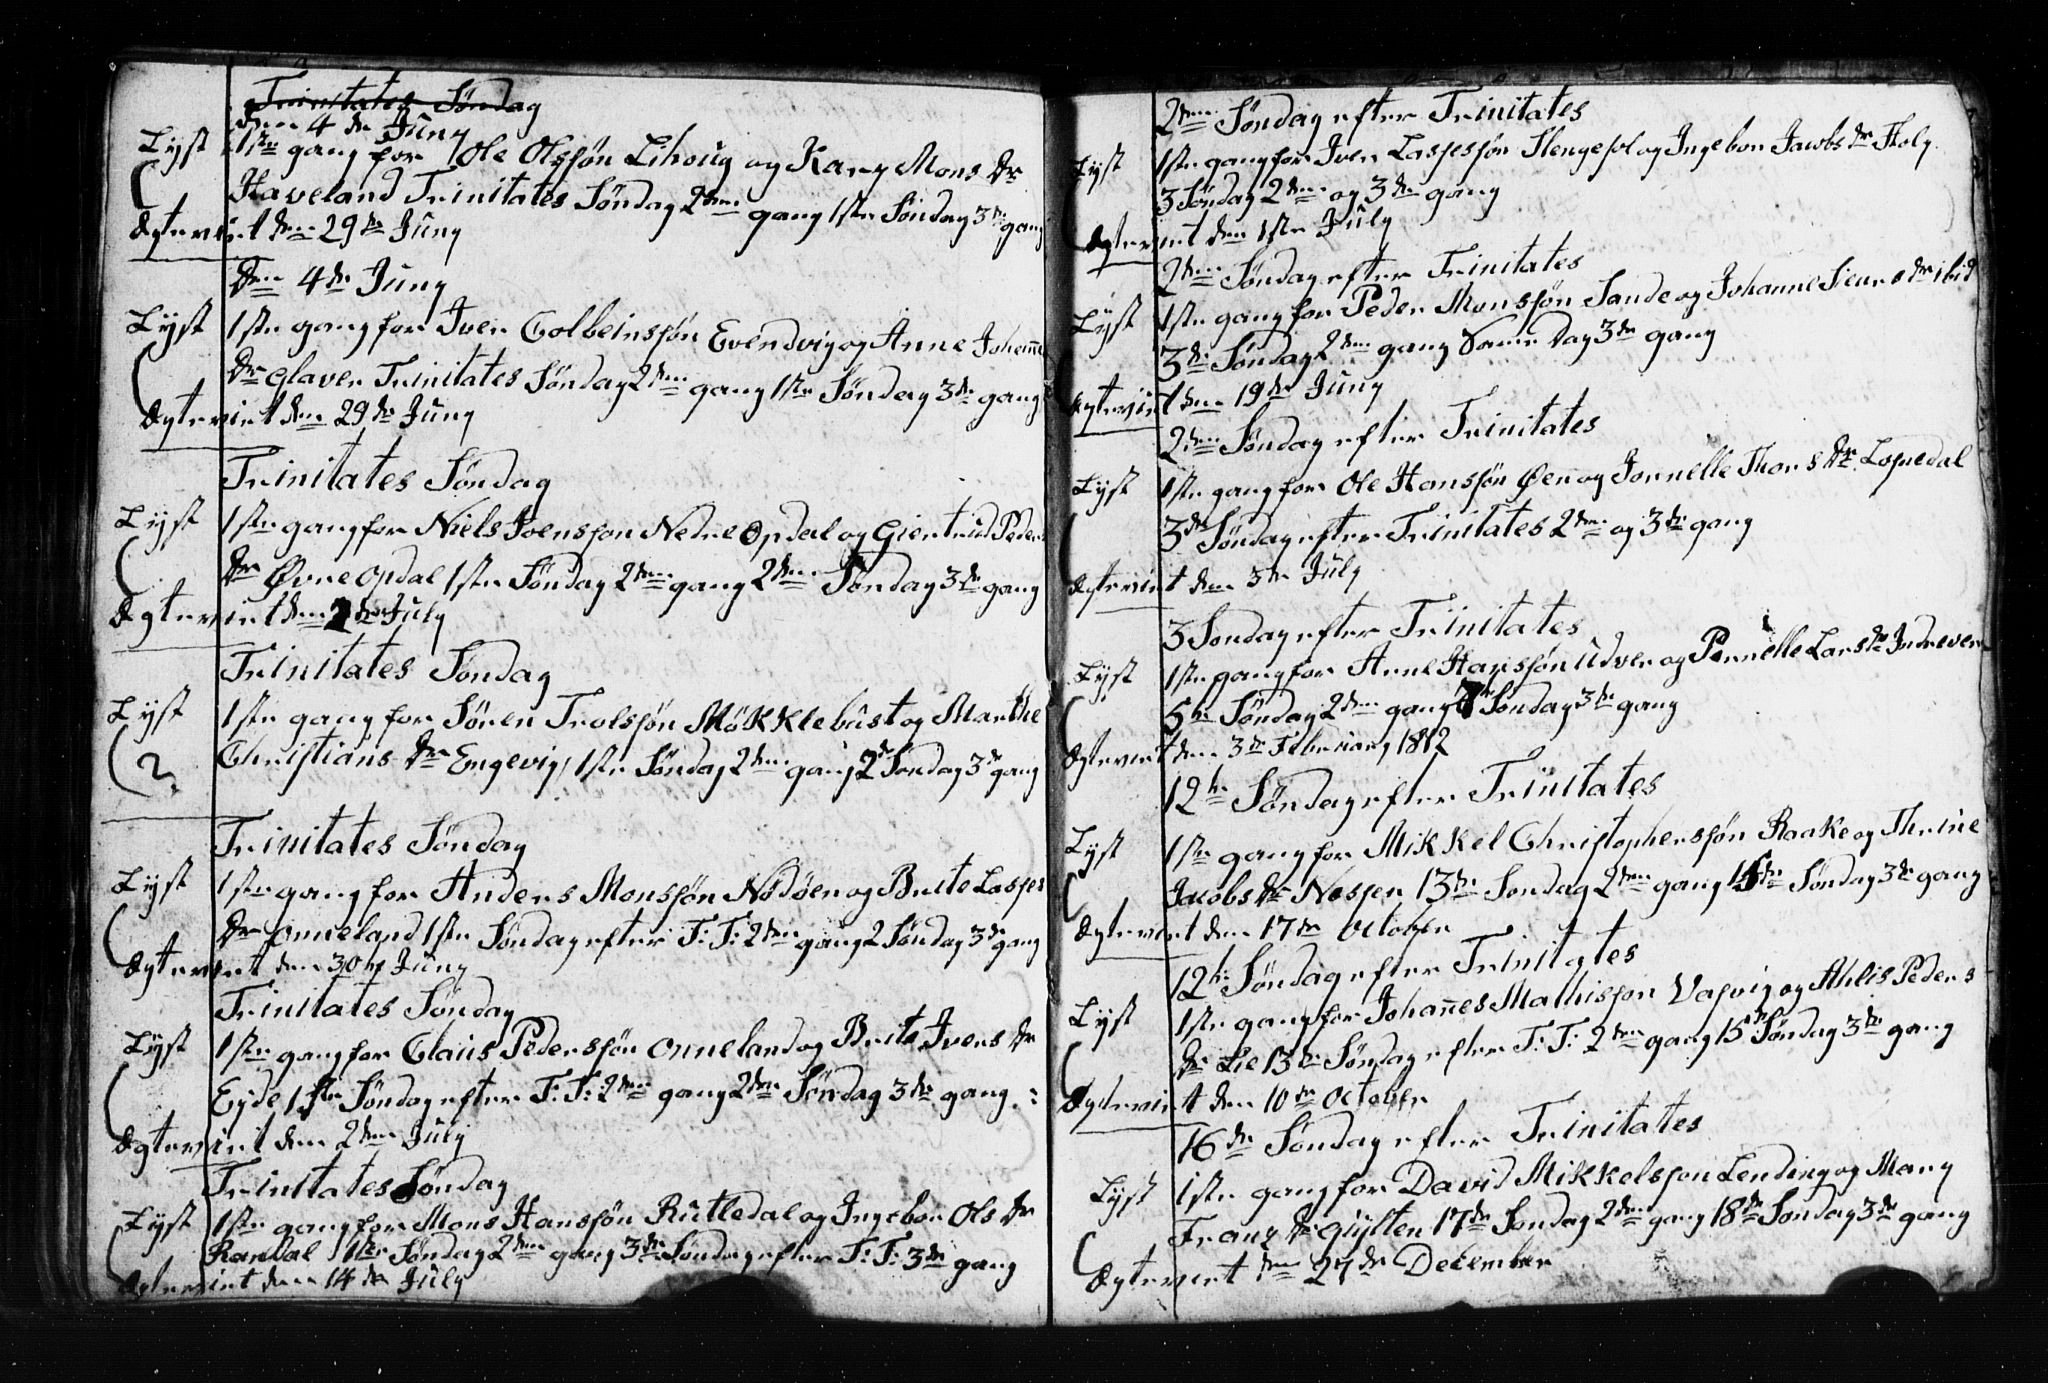 Trinitates Søndag
den 4de Juny
Lyst 1ste gang for Ole Olssøn Lihoug og Kary Mons Dr
Haveland Trinitates Søndag 2den gang 1ste Søndag 3de gang
Ægteviet den 29de Juny
Den 4de Juny
Lyst 1ste gang for Iver Colbeinssøn Evendvig og Anne Johanne
Dr Glaver Trinitates Søndag 2den gang 1ste Søndag 3de gang
Ægteviet den 29de Juny
Trinitates Søndag
Lyst 1ste gang for Niels Ivenssøn Nedre Opdal og Giertrud Peders
Dr Øvre Opdal 1ste Søndag 2den gang 2den Søndag 3de gang
Ægteviet den 2de July
Trinitates Søndag
Lyst 1ste gang for Søren Trolssøn Mökklebust og Marthe
Christians Dr Engevig 1ste Søndag 2den gang 2d Søndag 3de gang
?
Trinitates Søndag
Lyst 1ste gang for Anders Monssøn Nodøen og Brite Lasses
Dr Onneland 1ste Søndag efter T: T: 2den gang 2 Søndag 3de gang
Ægteviet den 30te Juny
Trinitates Søndag
Lyst 1ste gang for Claus Pederssøn Onneland og Brite Ivers Dr
Eyde 1ste Søndag efter T: T: 2den gang 2den Søndag 3de gang
Ægteviet den 2den July
Trinitates Søndag
Lyst 1ste gang for Mons Hanssøn Rutledal og Ingebor Ols Dr
Randal 1ste Søndag 2den gang 3de Søndag efter T: T: 3de gang
Ægteviet den 14de July
2den Søndag efter Trinitates
Lyst 1ste gang for Iver Lassessøn Hengesol og Ingebor Jacobs Dr Holy
3 Søndag 2den og 3de gang
Ægteviet den 1ste July
2den Søndag efter Trinitates
Lyst 1ste gang for Peder Monssøn Sande og Johanne Siurs Dr ibid
3de Søndag 2den gang Same Dag 3de gang
Ægteviet den 19de Juny
2den Søndag efter Trinitates
Lyst 1ste gang for Ole Hanssøn Øen og Jornelle Thors Dr Losnedal
3de Søndag efter Trinitates 2den og 3de gang
Ægteviet den 3de July
3 Søndag efter Trinitates
Lyst 1ste gang for Arne Hanssøn Udver og Pernelle Lars Dr Indrever
5te Søndag 2den gang 7de Søndag 3de gang
Ægteviet den 3de February 1812
12te Søndag efter Trinitates
Lyst 1ste gang for Mikkel Christopherssøn Raake og Thrine
Jacobs Dr Nessen 13de Søndag 2den gang 15de Søndag 3de gang
Ægteviet den 17de October
12te Søndag efter Trinitates
Lyst 1ste gang for Johañes Mathissøn Vasvig og Ahlis Peders
Dr Lie 13de Søndag efter T: T: 2den gang 15de Søndag 3de gang
Ægteviet den 10de October
16de Søndag efter Trinitates
Lyst 1ste gang for David Mikkelssøn Lending og Mary
Franz Dr Gylten 17de Søndag 2den gang 18de Søndag 3de gang
Ægteviet den 27de December